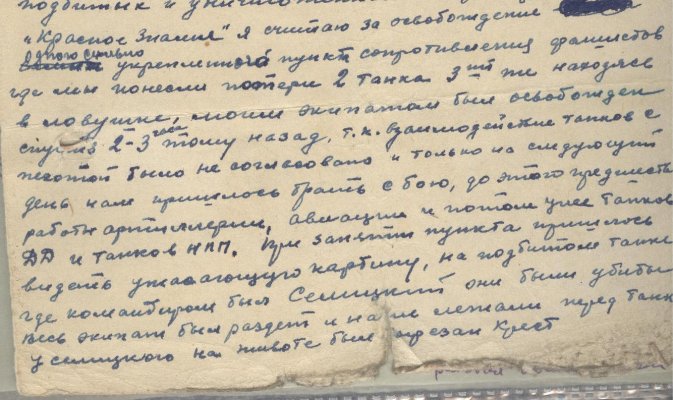 подбитых и уничтоженных
"Красное Знамя" я считаю за освобождение
одного сильно
укрепленного пункт сопротивления фашистов
где мы понесли потери 2 танка 3й же находясь
в ловушке, моим экипажем был освобожден
спустя 2-3 часа тому назад, т.к. взаимодействие танков с
пехотой было не согласовано и только на следующий
день нам пришлось брать с бою, до этого предшеств
работа артиллерии, авиации и потом уже танков
ДД и танков НПП. При занятии пункта пришлось
видеть ужасающую картину, на подбитом танке
где командиром был Селицкий они были убиты
весь экипаж был раздет и лежали перед танк
у Селицкого на животе был вырезан Крест